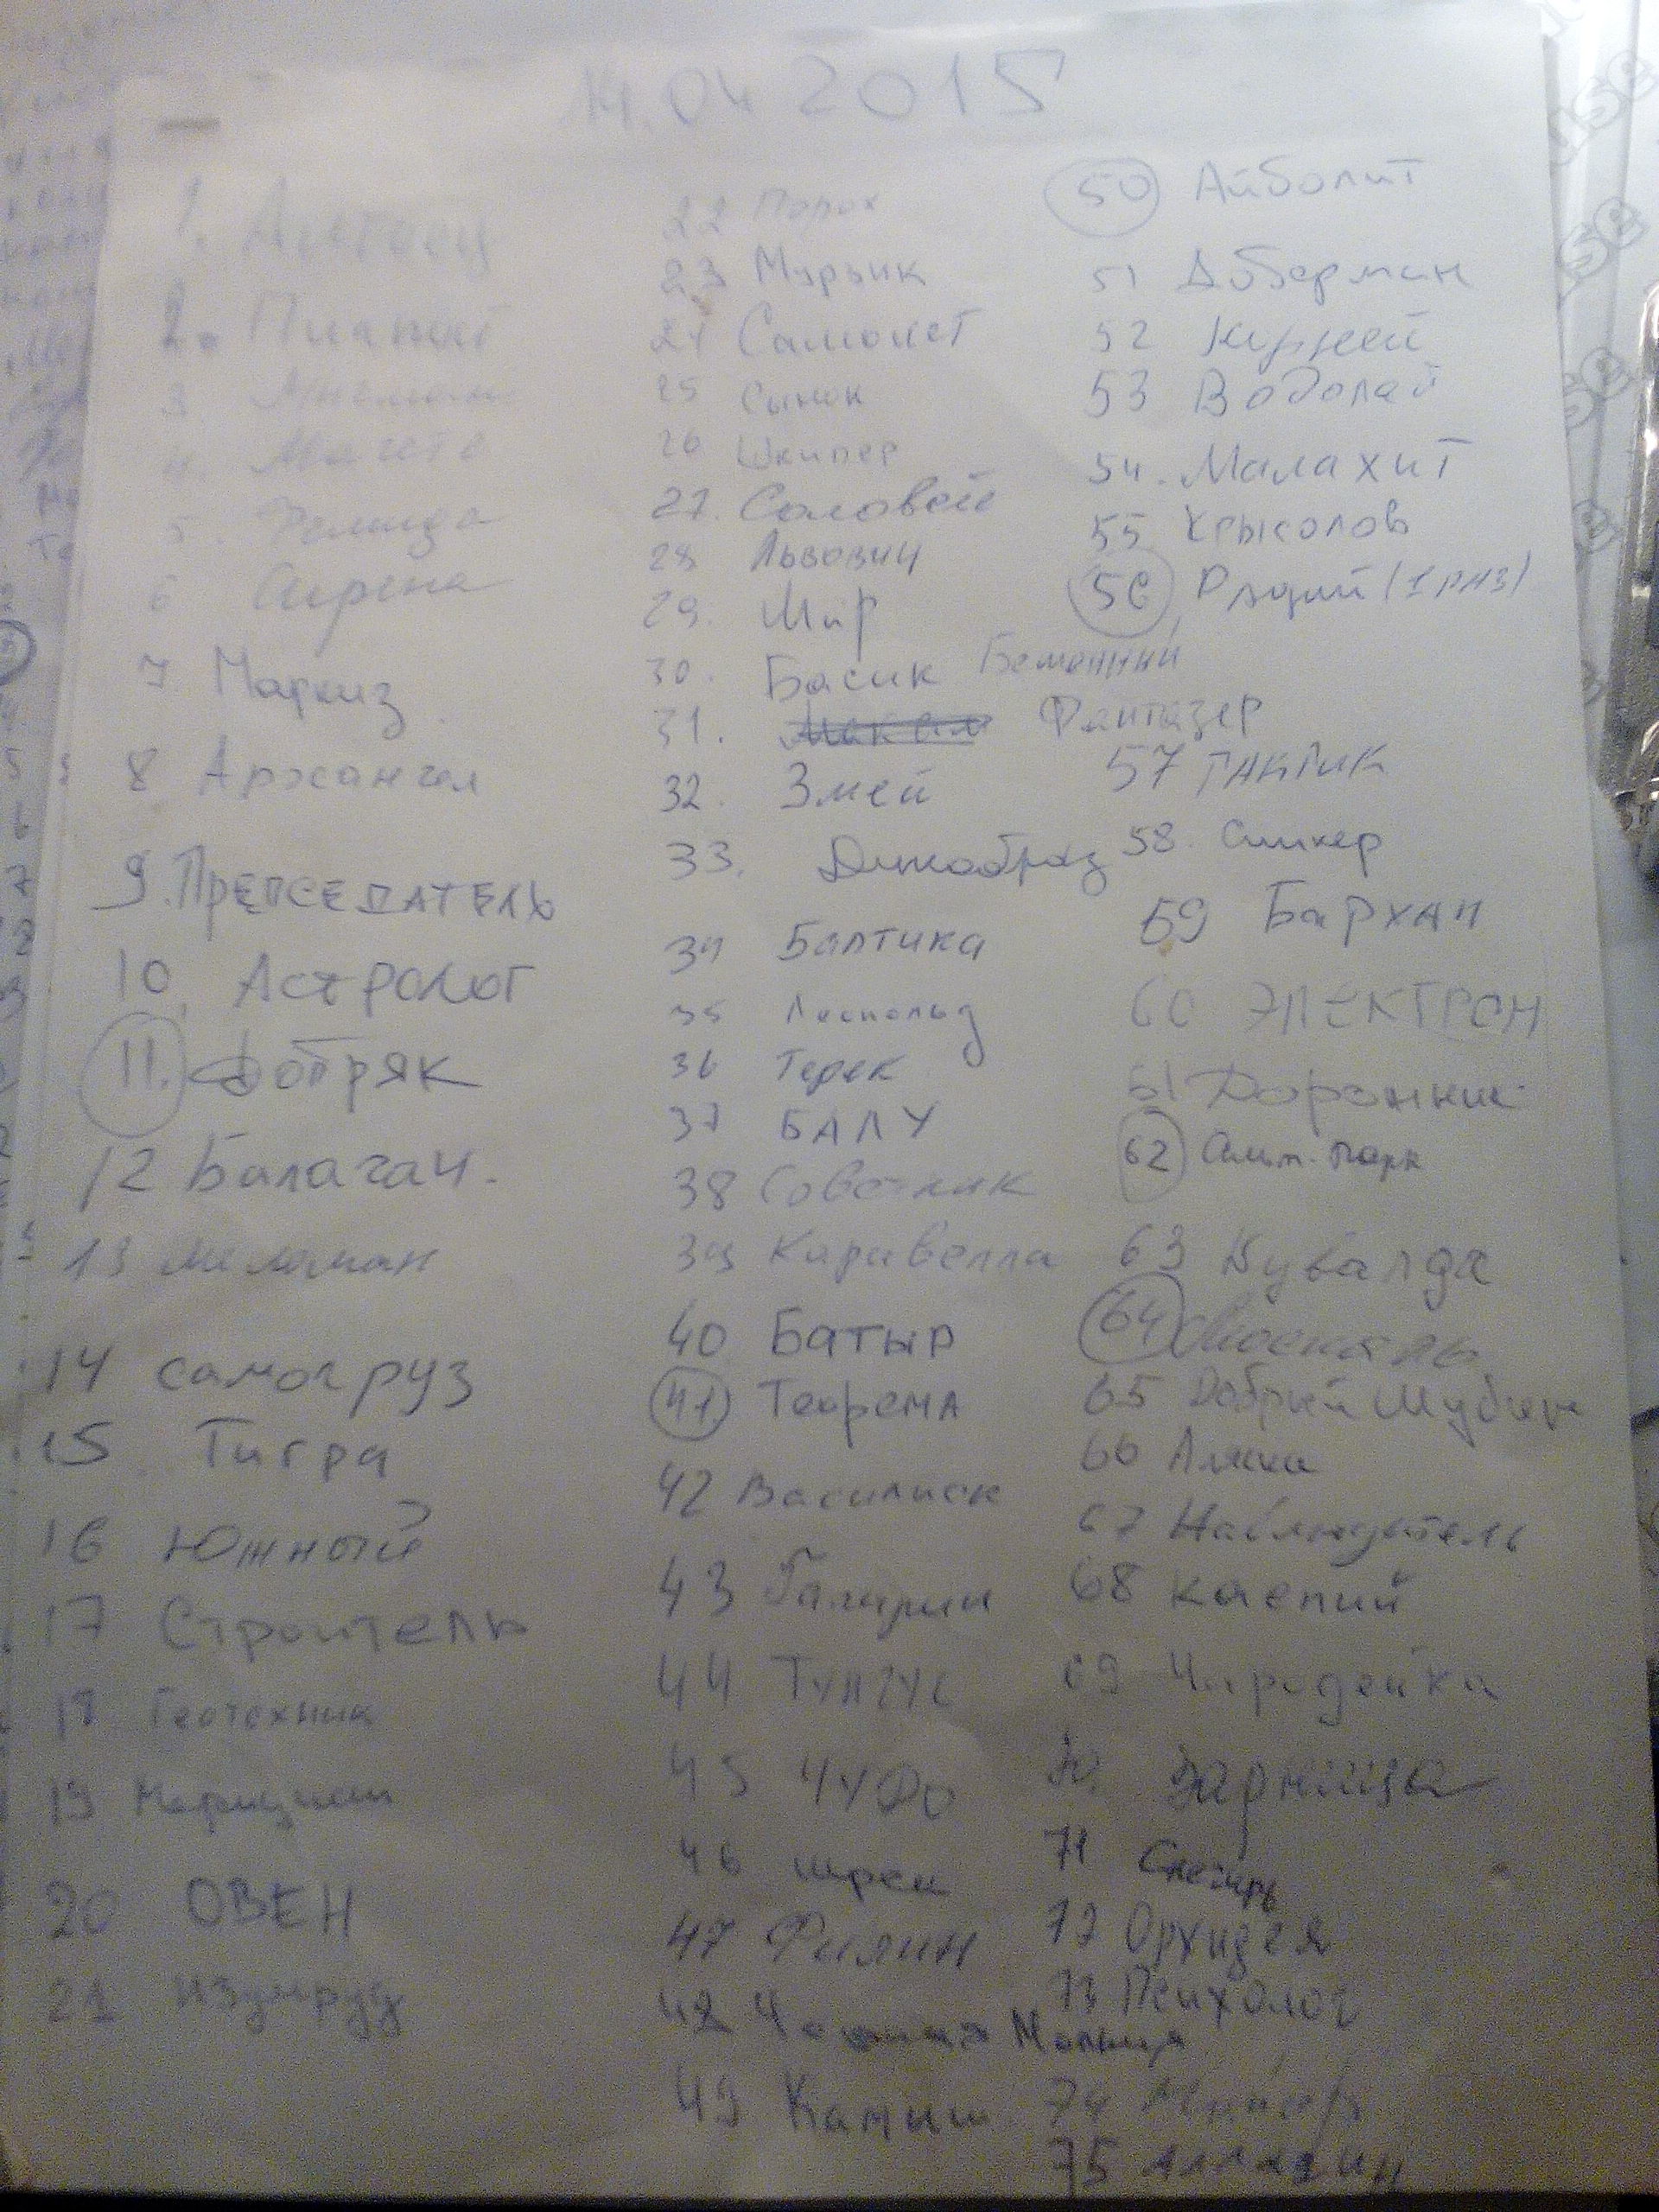 .04 2015
1.
2.
3
4.
5.
6 Сирена
7 Маркиз
8 Архангел
9. ПРЕДСЕДАТЕЛЬ
10. Астролог
11. Добряк
12 Балагач.
13 Меломан
14 самогруз
15. Тигра
16 Южный
17 Строитель
18 Геотехник
19 Меридиан
20 ОВЕН
21 изумруд
22 Порох
23 Мурзик
24 Самолет
25 Сынок
26 Шкипер
27. Соловей
28 Львович
29. Мир
30. Басик
31. Фантазер
32. Змей
33. Дикобраз
34 Балтика
35 Леопольд
36 Терек
37 БАЛУ
38 Советник
39 Каравелла
40 Батыр
41 Теорема
42 Василиск
43 Гагарин
44 Тунгус
45
46 шрек
47 Филин
48 Молния
49 Камыш
50 Айболит
51 Доберман
52 Корней
53 Водолей
54. Малахит
55 Крысолов
56 (1 раз)
57 ТАКТИК
58. Сникер
59 Бархан
60 ЭЛЕКТРОН
61 Дорожник
62 парк
63 Кувалда
64
65 Добрый Шубин
66 Аляска
67 Наблюдатель
68 каспий
69 Чародейка
70. Зарница
71 Снегирь
72 Орхидея
73 Психолог
74
75 Алладин